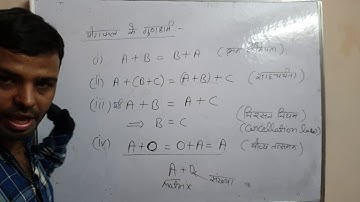 योगफल के गुणधर्म :-
(i) A + B = B + A
(ii) A + (B + C) = (A + B) + C (साहचर्यता)
(iii) यदि A + B = A + C (निरसन नियम)
⇒ B = C (Cancellation law)
(iv) A + O = O + A = A (योज्य तत्समक)
A + 
matrix संख्या